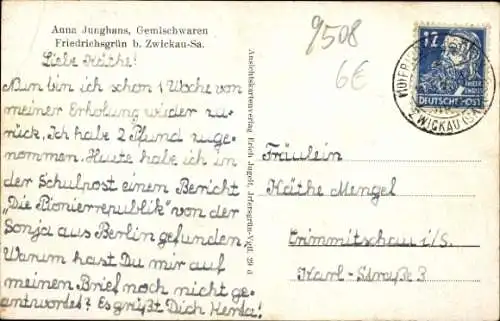 Anna Junghans, Gemischwaren
Friedrichsgrün b. Zwickau-Sa.
Liebe Käthe!
Nun bin ich schon 1 Woche von
meiner Erholung wieder zu-
rück. Ich habe 2 Pfund zuge-
nommen. Heute habe ich in
der Schulpost einen Bericht
„Die Pionierrepublik" von der
Sonja aus Berlin gefunden
Warum hast Du mir auf
meinen Brief noch nicht ge-
antwortet? Es grüßt Dich Herta!
Ansichtskartenverlag Erich Jugelt, Jetersgrün-Vgtl. 59 a
9508
6€
12
DEUTSCHE POST
ZWICKAU (SA)
Fräulein
Käthe Mengel
Crimmitschau i/S.
Karl-Straße 3